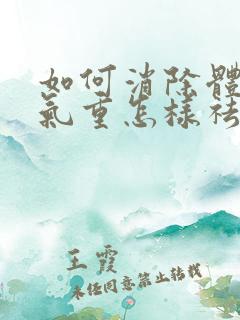 如何消除體
氣重怎樣祛
王霞
未经同意禁止转载